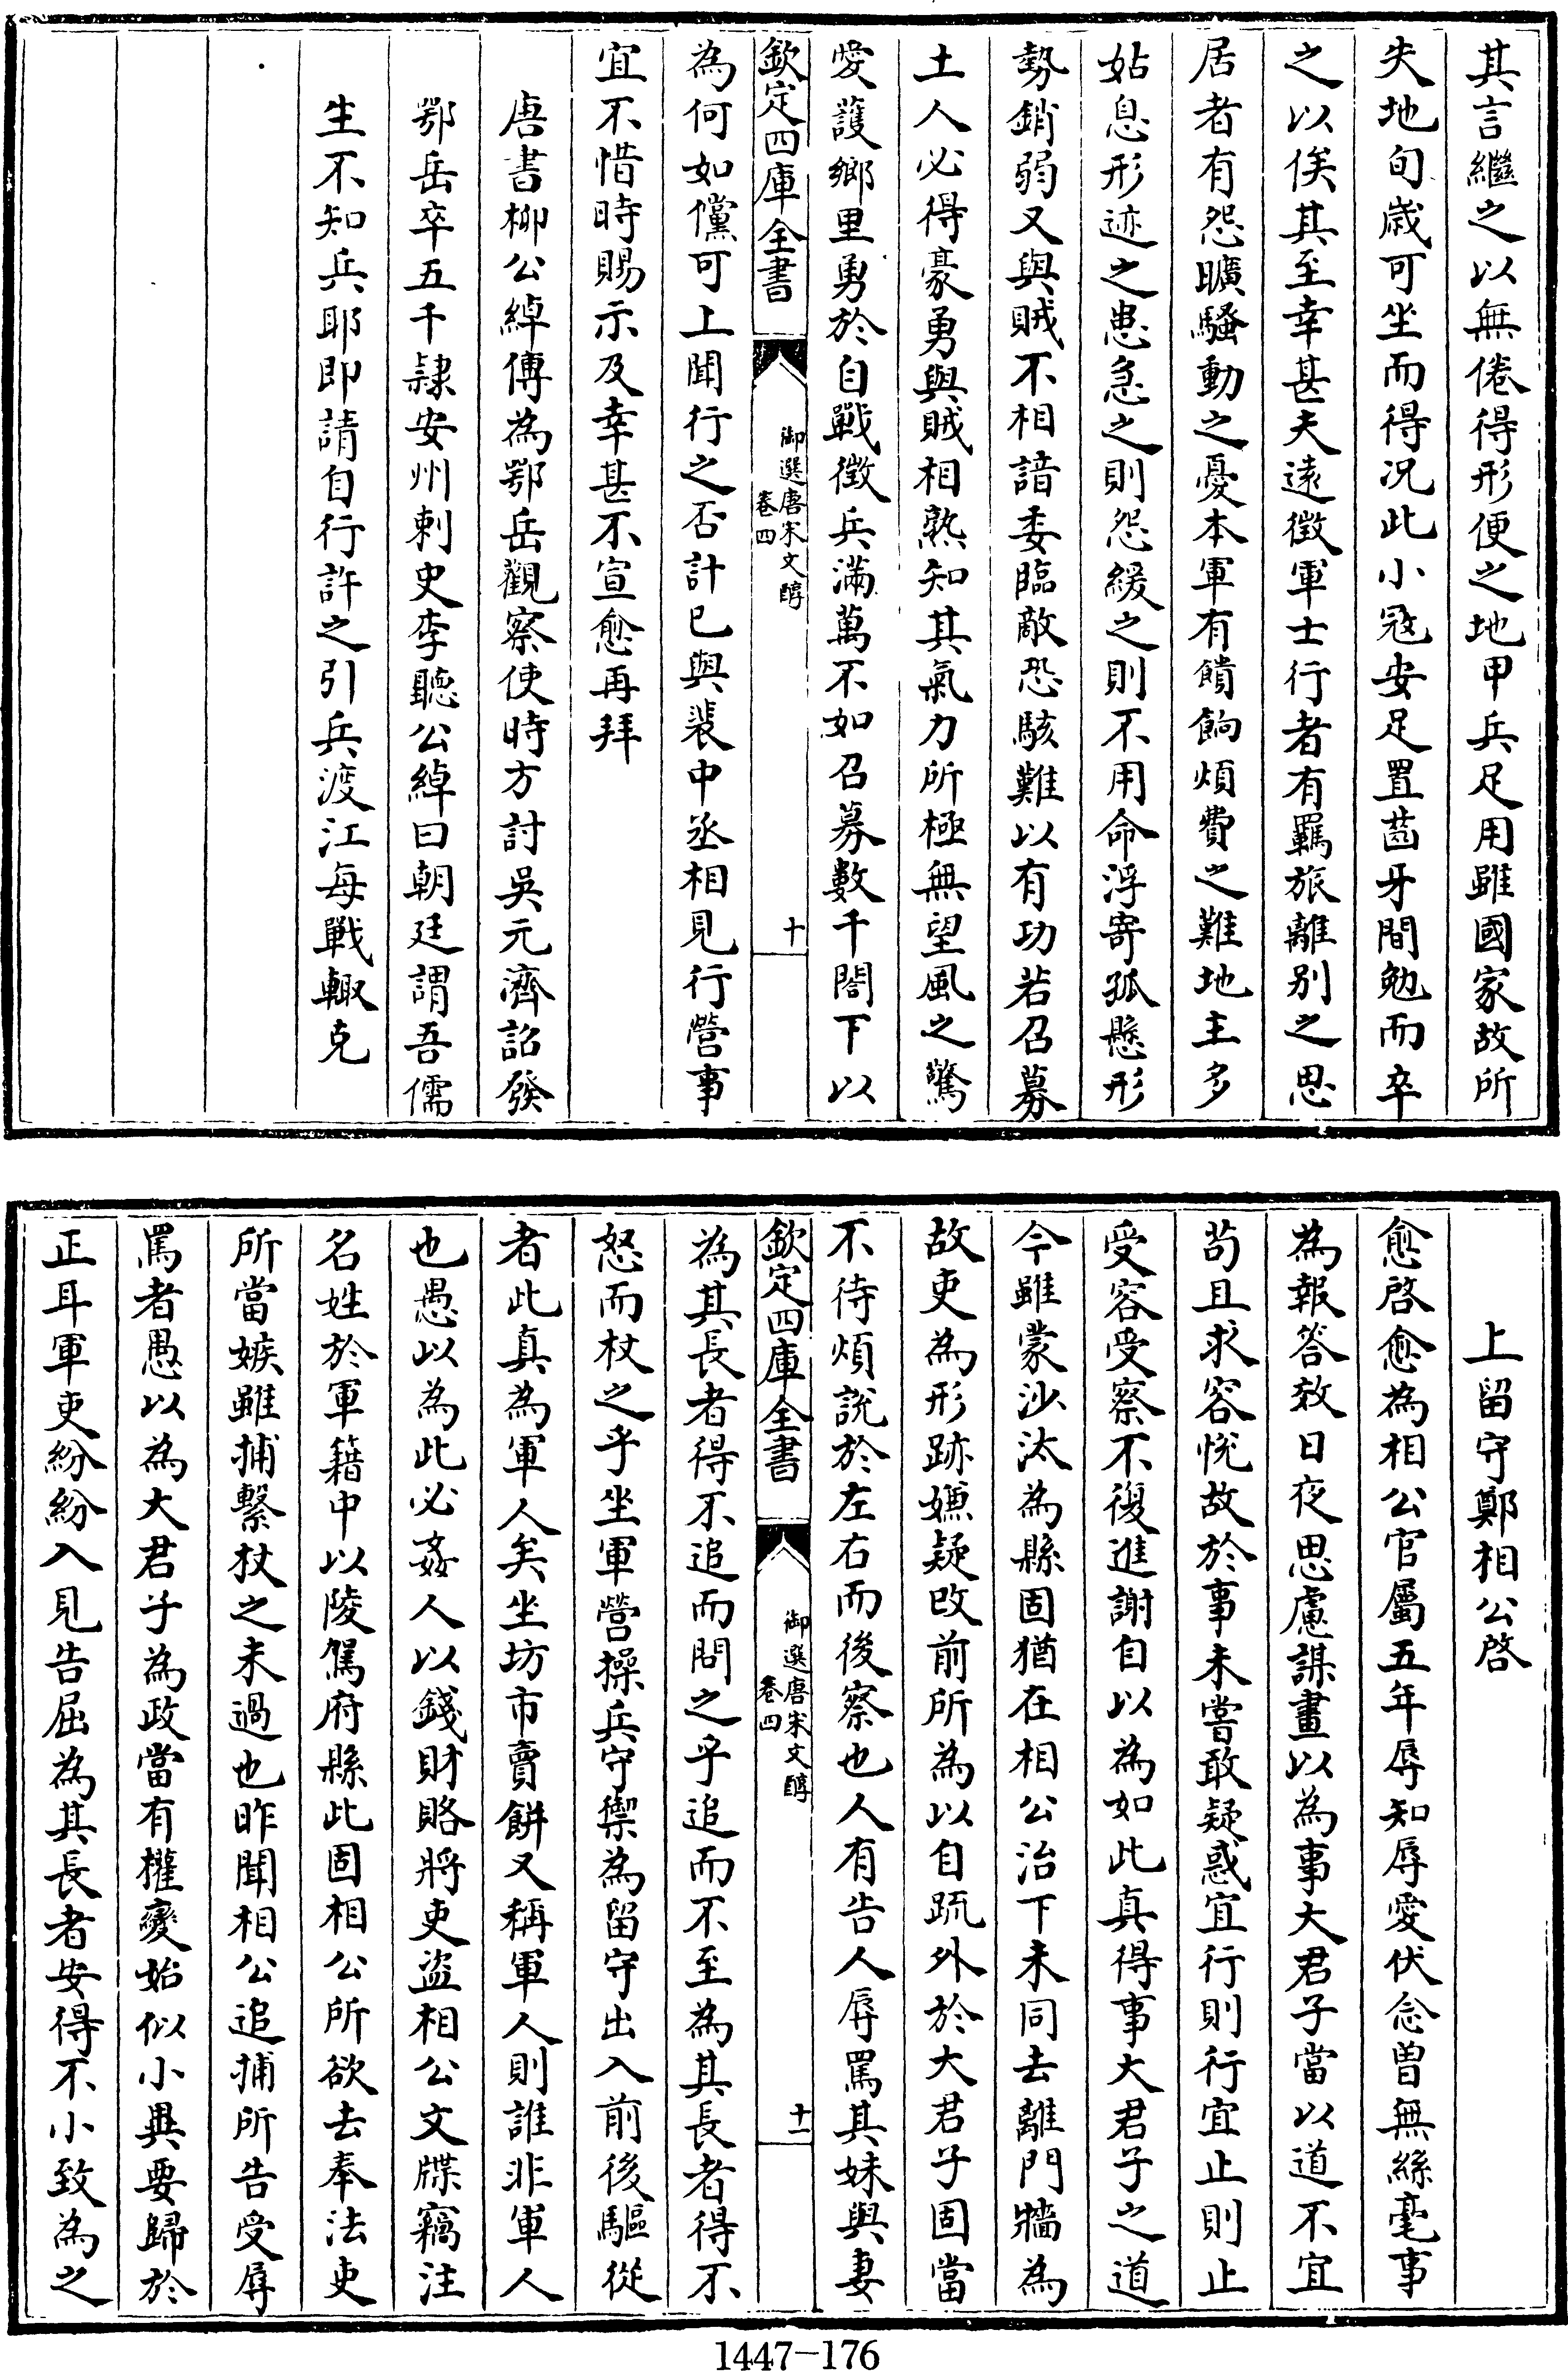 其言繼之以無倦得形便之地甲兵足用雖國家故所
失地旬歳可坐而得况此小冦安足置齒牙間勉而卒
之以俟其至幸甚夫遠徴軍士行者有羈旅離别之思
居者有怨曠騷動之憂本軍有饋餉煩費之難地主多
姑息形迹之患急之則怨緩之則不用命浮寄孤懸形
勢銷弱又與賊不相諳委臨敵恐駭難以有功若召募
土人必得豪勇與賊相熟知其氣力所極無望風之驚
愛護鄉里勇於自戰徴兵滿萬不如召募數千閤下以
欽定四庫全書
御選唐宋文醇
卷四
十
為何如儻可上聞行之否計已與裴中丞相見行營事
宜不惜時賜示及幸甚不宣愈再拜
唐書柳公綽傳為鄂岳觀察使時方討吳元濟詔發
鄂岳卒五千隷安州刺史李聽公綽曰朝廷謂吾儒
生不知兵耶即請自行許之引兵渡江每戰輙克
上留守鄭相公啓
愈啓愈為相公官屬五年辱知辱愛伏念曽無絲毫事
為報答效日夜思慮謀畫以為事大君子當以道不宜
茍且求容悦故於事未嘗敢疑惑宜行則行宜止則止
受容受察不復進謝自以為如此真得事大君子之道
今雖蒙沙汰為縣固猶在相公治下未同去離門牆為
故吏為形跡嫌疑改前所為以自疏外於大君子固當
不待煩説於左右而後察也人有告人辱罵其妹與妻
欽定四庫全書
御選唐宋文醇
卷四
十一
為其長者得不追而問之乎追而不至為其長者得不
怒而杖之乎坐軍營操兵守禦為留守出入前後驅從
者此真為軍人矣坐坊市賣餅又稱軍人則誰非軍人
也愚以為此必姦人以錢財賂將吏盜相公文牒竊注
名姓於軍籍中以陵駕府縣此固相公所欲去奉法吏
所當嫉雖捕繫杖之未過也昨聞相公追捕所告受辱
罵者愚以為大君子為政當有權變始似小異要歸於
正耳軍吏紛紛入見告屈為其長者安得不小致為之
1447-176